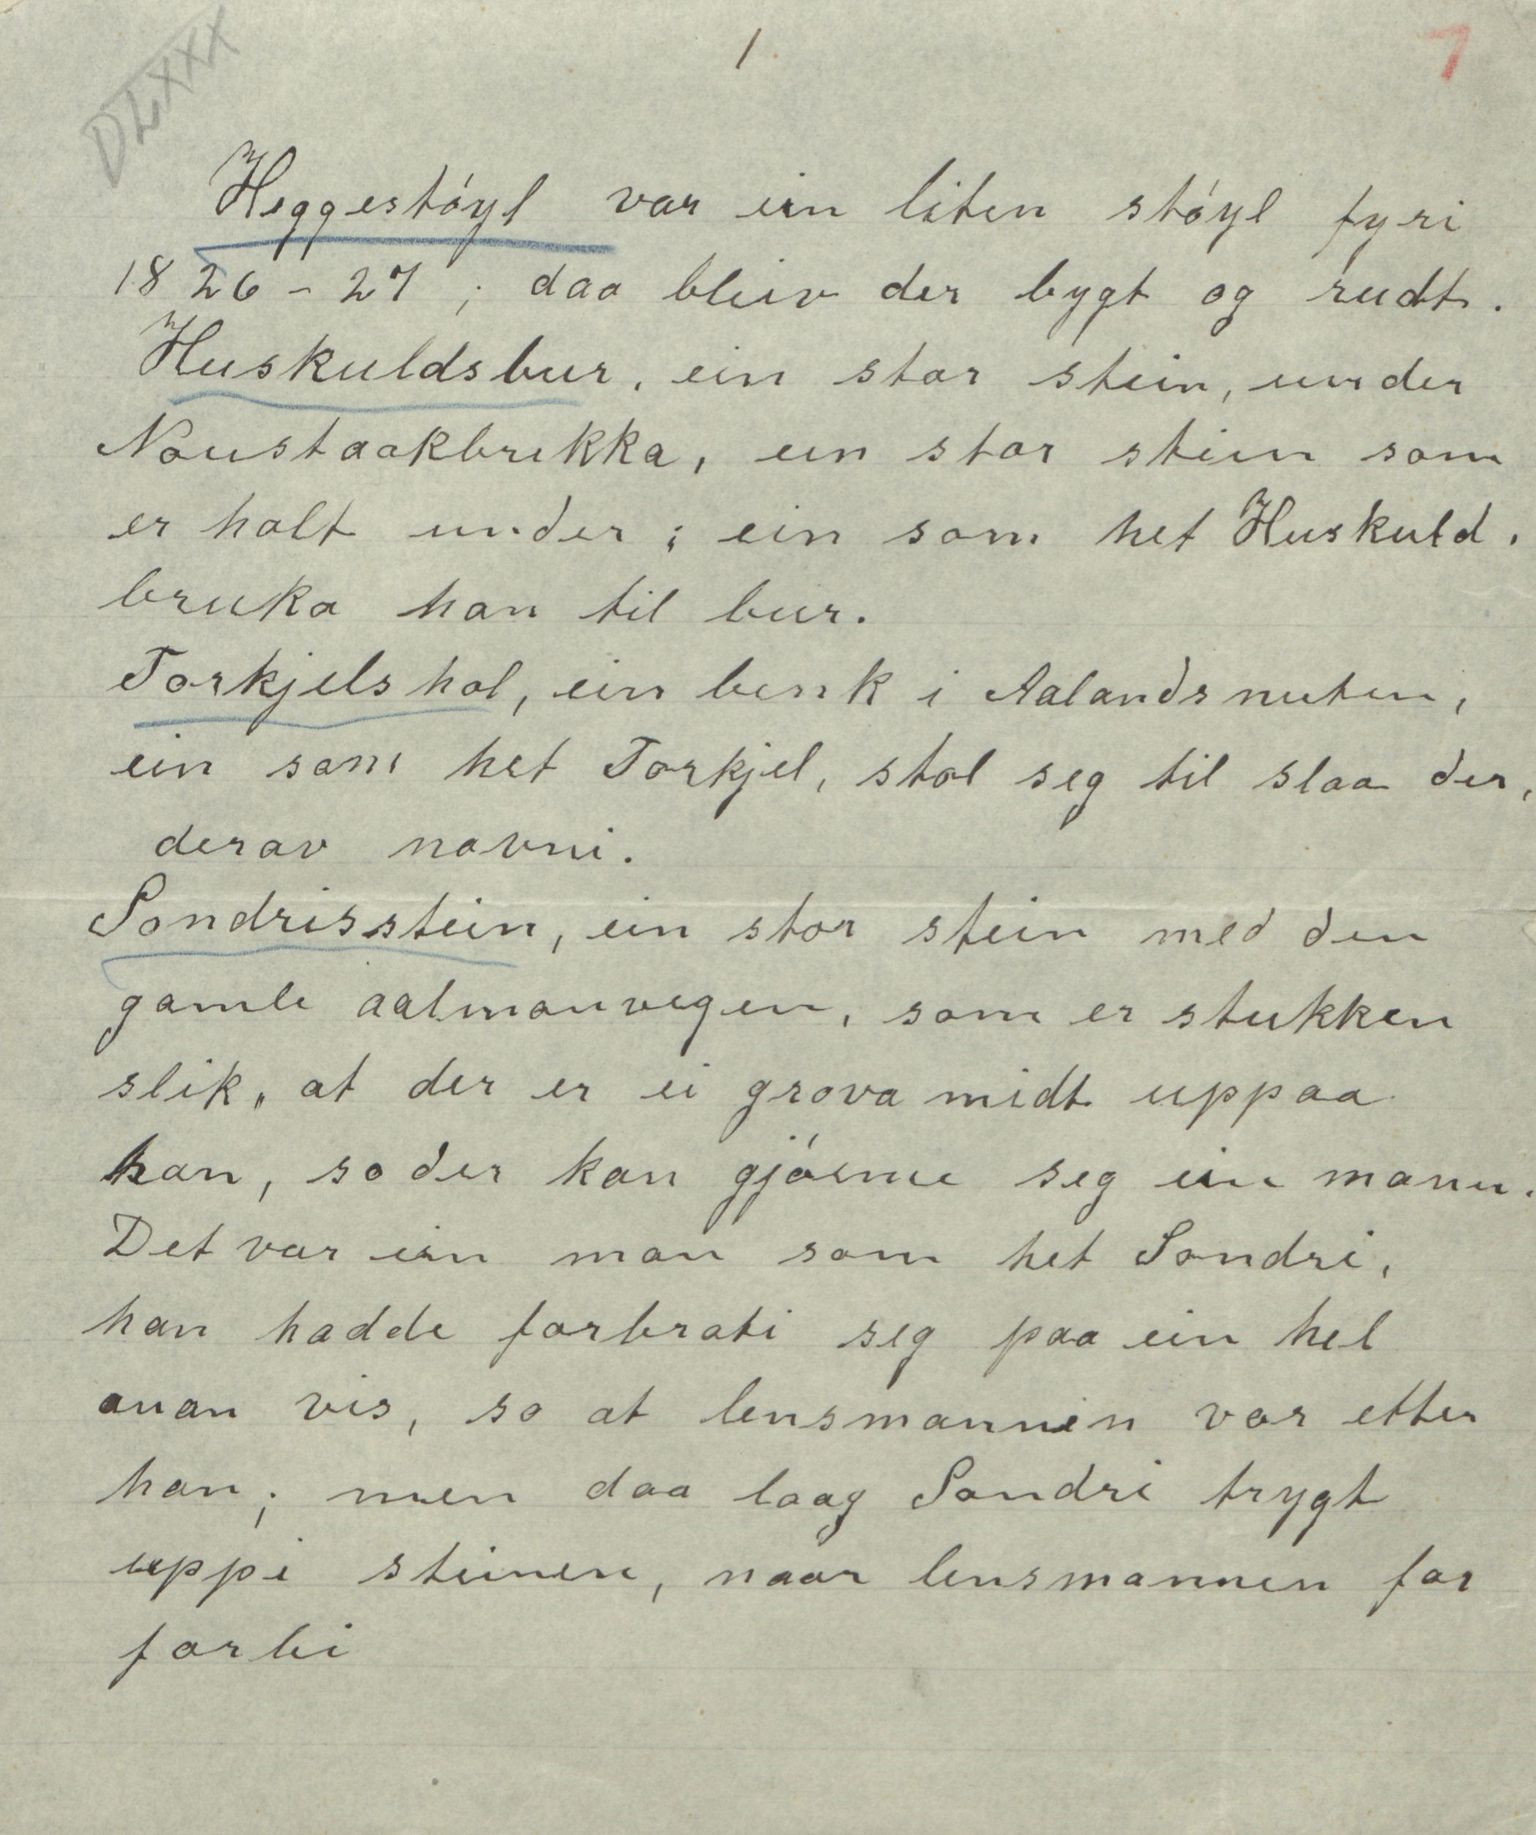 DLXXX
1
7
Heggestøyl var ein liten støyl fyri
1826-27; daa bleiv der bygt og rudt.
Huskuldsbur, ein stor stein, under
Noustaakbrekka, ein stor stein som
er holt under; ein som het Huskuld,
bruka han til bur.
Torkjelshol, ein benk i Aalandsnuten,
ein som het Torkjel, stol seg til slaa der,
derav navni.
Sondrisstein, ein stor stein med den
gamle aalmanvegen, som er stukken
slik, at der er ei grova midt uppaa
han, so der kan gjøime seg ein mann.
Det var ein man som het Sondri,
han hadde forbroti seg paa ein hel
anan vis, so at lensmannen var etter
han; men daa laag Sondri trygt
uppi steinen, naar lensmannen for
forbi